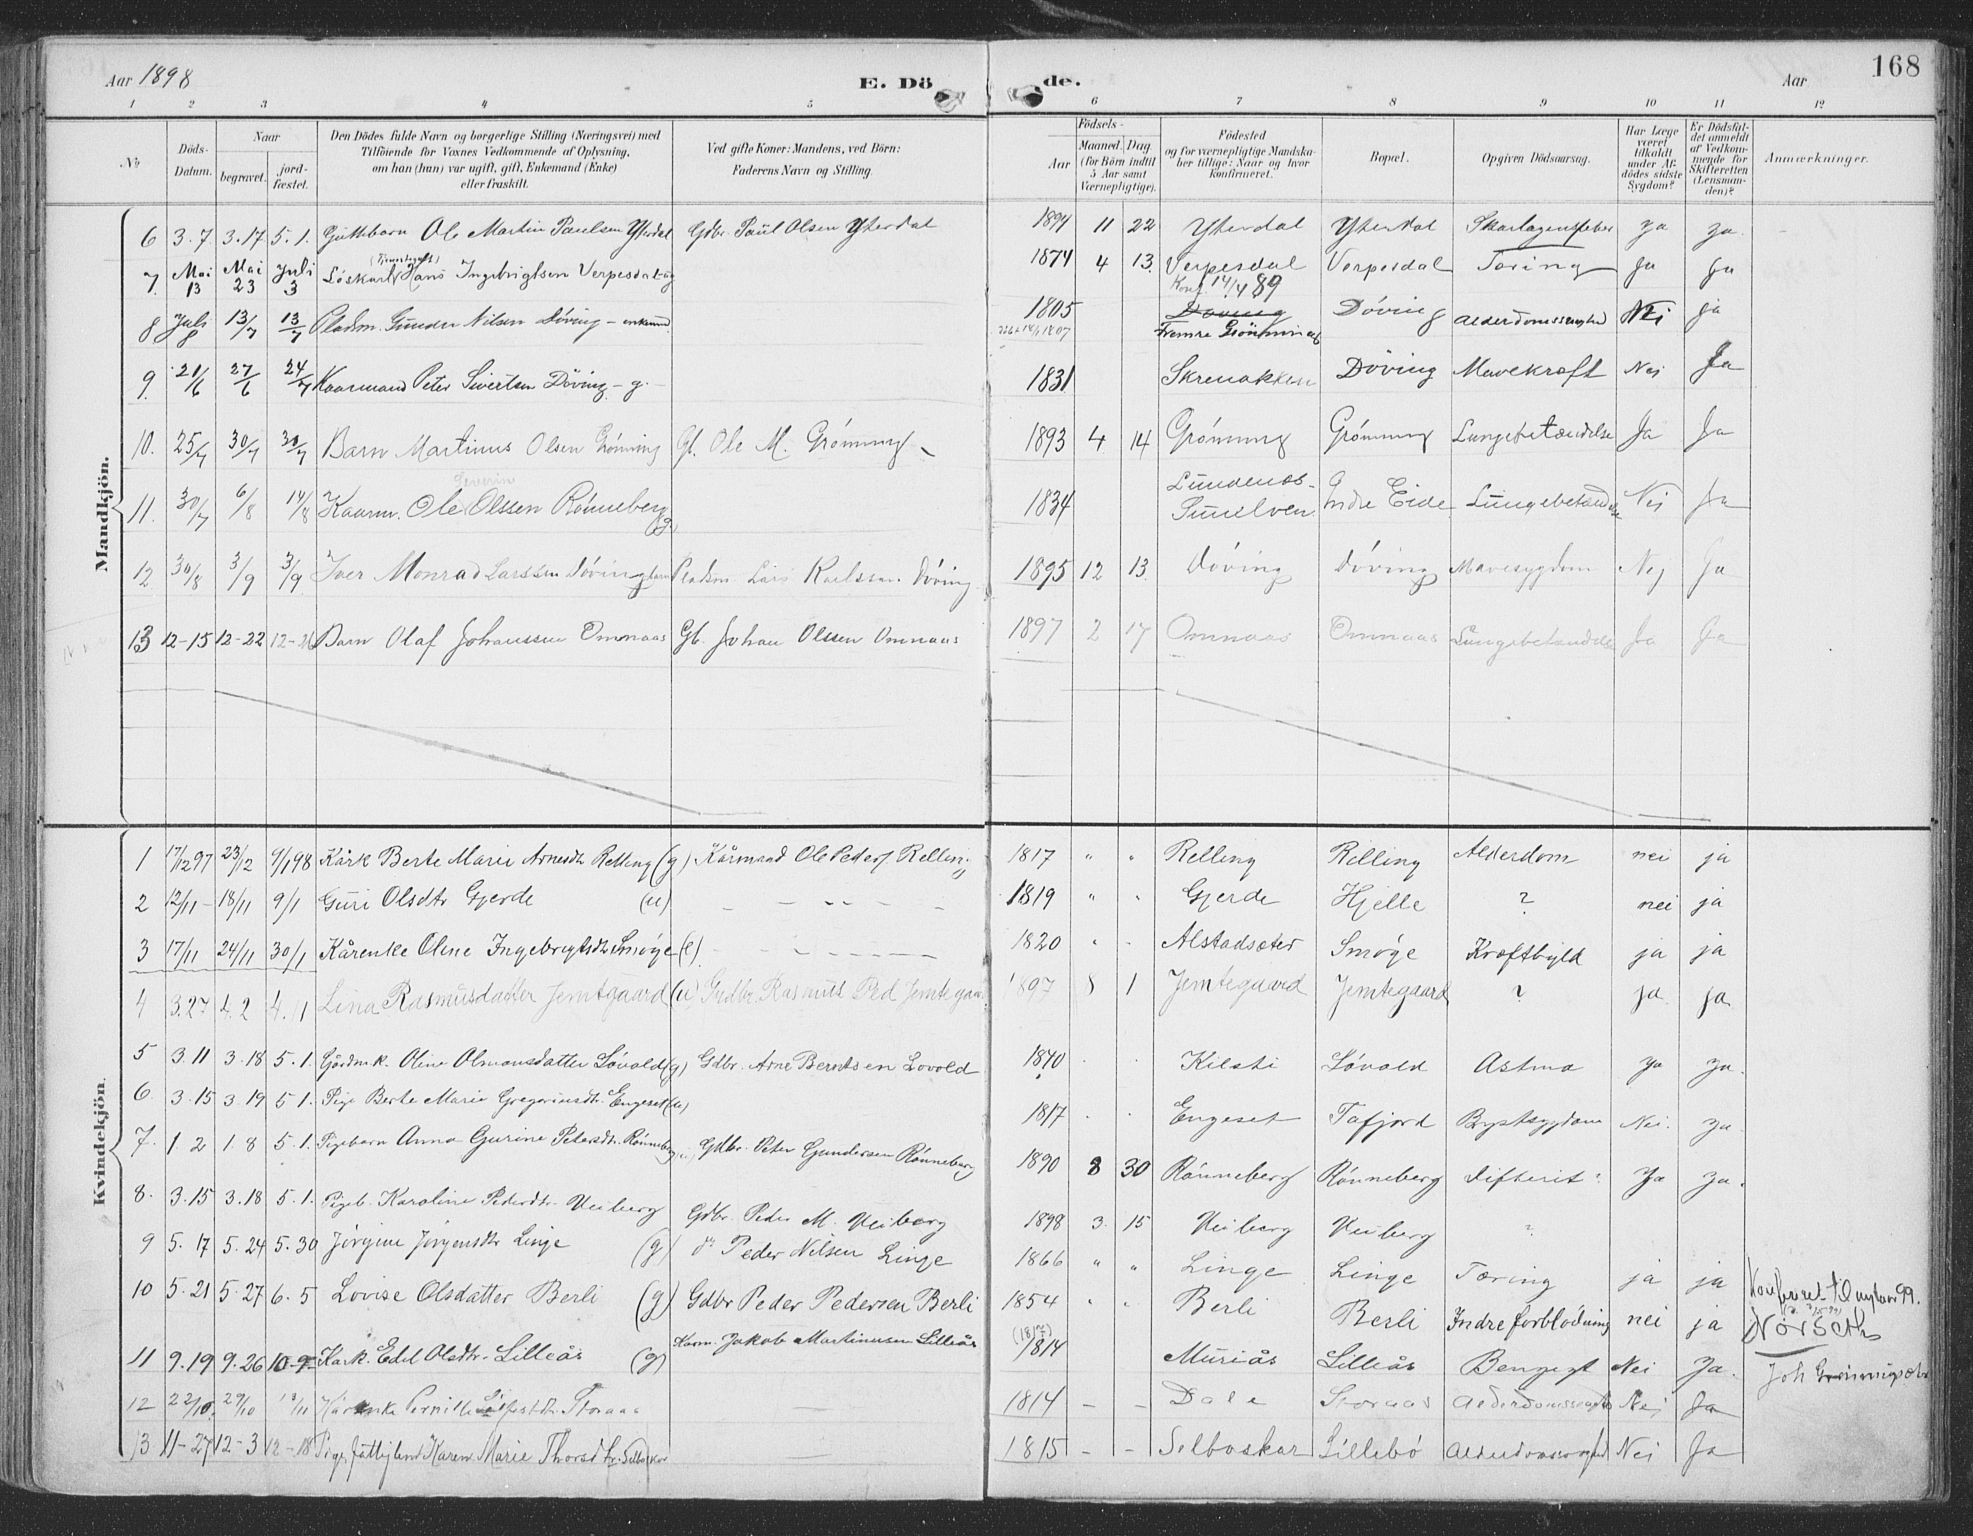 Aar 1898
E. Dö de.
Aar
168
1 2 3 4 5 6 7 8 9 10 11 12
No
Döds-
Datum.
Naar
begravet.
jord-
fæstet.
Den Dödes fulde Navn og borgerlige Stilling (Næringsvei) med
Tilföiende for Voxnes Vedkommende af Oplysning,
om han (hun) var ugift, gift, Enkemand (Enke)
eller fraskilt.
Ved gifte Koner: Mandens, ved Börn:
Faderens Navn og Stilling.
Födsels-
Aar
Maaned. Dag
(for Börn indtil
5 Aar samt
Værnepligtige).
Födested
og for værnepligtige Mandska-
ber tillige: Naar og hvor
konfirmeret.
Bopæl.
Opgiven Dödsaarsag.
Har Læge
været
tilkaldt
under Af-
dödes sidste
Sygdom?
Er Dödsfal-
det anmeldt
af Vedkom-
mende for
Skifteretten
(Lensman-
den)?
Anmærkninger.
Mandkjön.
6 3.7 3.17 5.1. Guttebarn Ole Martin Paulsen Yterdal Gdbr. Paul Olsen Yterdal 1894 11 22 Yterdal Yterdal Skarlagensfeber Ja Ja
7. Mai 13 Mai 23 Juli 3 Løskarl Hans Ingebrigtsen Verpesdal ug 1874 4 13. Verpesdal Verpesdal Tæring Ja Ja
Konf. 14/4 89
8 Juli 8 13/7 13/7 Pladsm. Gunder Nilsen Döving - enkemd. 1805 Döving Döving Alderdomssvaghed Nei ja
Fremre Grönning
9. 21/6 27/6 24/7 Kaarmand Peter Sivertsen Döving - g. - 1831 Skrenakken Döving Mavekræft Nei Ja
10. 25/7 30/7 30/7 Barn Martinus Olsen Grønning Gb. Ole M. Grønning 1893 4 14 Grønning Grønning Lungebetændelse Ja Ja
Severin
11. 30/7 6/8 14/8 Kaarm. Ole Olssen Rønneberg g. 1834 Lundenes - Sunelven Indre Eide Lungebetændelse Nei Ja
12 30/8 3/9 3/9 Iver Monrad Larssen Døving barn Pladsm Lars Karlssen Døving 1895 12 13. Døving Døving Mavesygdom Nej Ja
13 12-15 12-22 12-26 Barn Olaf Johanssen Omnaas Gb. Johan Olssen Omnaas 1897 2 17 Omnaas Omnaas Lungebetændelse Ja Ja
Kvindekjön.
1 17/12 97 23/12 9/1 98 Kårk Berte Marie Arnesdt Relling (g) Kårmand Ole Peders. Relling 1817 " " Relling Relling Alderdom nei ja
2 12/11 - 18/11 9/1 Guri Olsdtr Gjerde (u) - - - - 1819 " " Gjerde Hjelle ? nei ja
3 17/11 24/11 30/1 Kårenke Oline Ingebrigtsdtr Smøge (e) - - - - 1820 " " Alstadsæter Smøge Kræftbyld ja ja
4 3.27 4.2 4.11 Lina Rasmusdatter Jemtegaard (u) Gmdbr. Rasmus Ped Jemtegaard 1897 8 1 Jemtegaard Jemtegaard ? ja ja
5 3.11 3.18 5.1. Gårdmk. Oline Olmansdatter Løvold (g) Gdbr. Arne Berntsen Lovold 1840 Kilsti Løvold Astma Ja Ja.
6. 3.15 3.19 5 1. Pige Berte Marie Gregoriusdtr. Engeset (u) 1817 Engeset Tafjord Brystsygdom Nei. Ja.
7. 1 2 1.8 5.1. Pigebarn Anna Gurine Petersdtr. Rønneberg Gdbr. Peter Gundersen Rønneberg 1890 8 30 Rønneberg Rønneberg Difterit Ja Ja.
8. 3.15 3.18 5.1. Pigeb. Karoline Pedersdtr. Veiberg Gdbr. Peder M. Veiberg 1898 3. 15 Veiberg Veiberg ?
9 5.17 5.24 5.30 Jørgine Jørgensdtr Linge (g) do Peder Nilsen Linge 1866 " " Linge Linge Tæring ja ja
10 5.21 5.27 6.5 Lovise Olsdatter Berli (g) Gdbr Peder Pedersen Berli 1854 " " Berli Berli Indre forblødning nei ja
11 9.19 9.26 10-9- Kark. Edel Olsdtr. Lilleås (g) Karm. Jakob Martinusen Lilleås 1814 Muriås Lilleås Nei Ja.
12 22/10 29/10 Pernille Storaas 1814 - - Dale Storaas Alderdomssvaghed Nei Ja
13 11-27 12-3 12-18 Pige Karen Marie Thorsdtr. Selboskar 1815 - - Selboskar Lillebø Alderdomssvaghed Nei Ja
Konfereret til nytaar 99.
Nørseth
Joh Grønningsæter